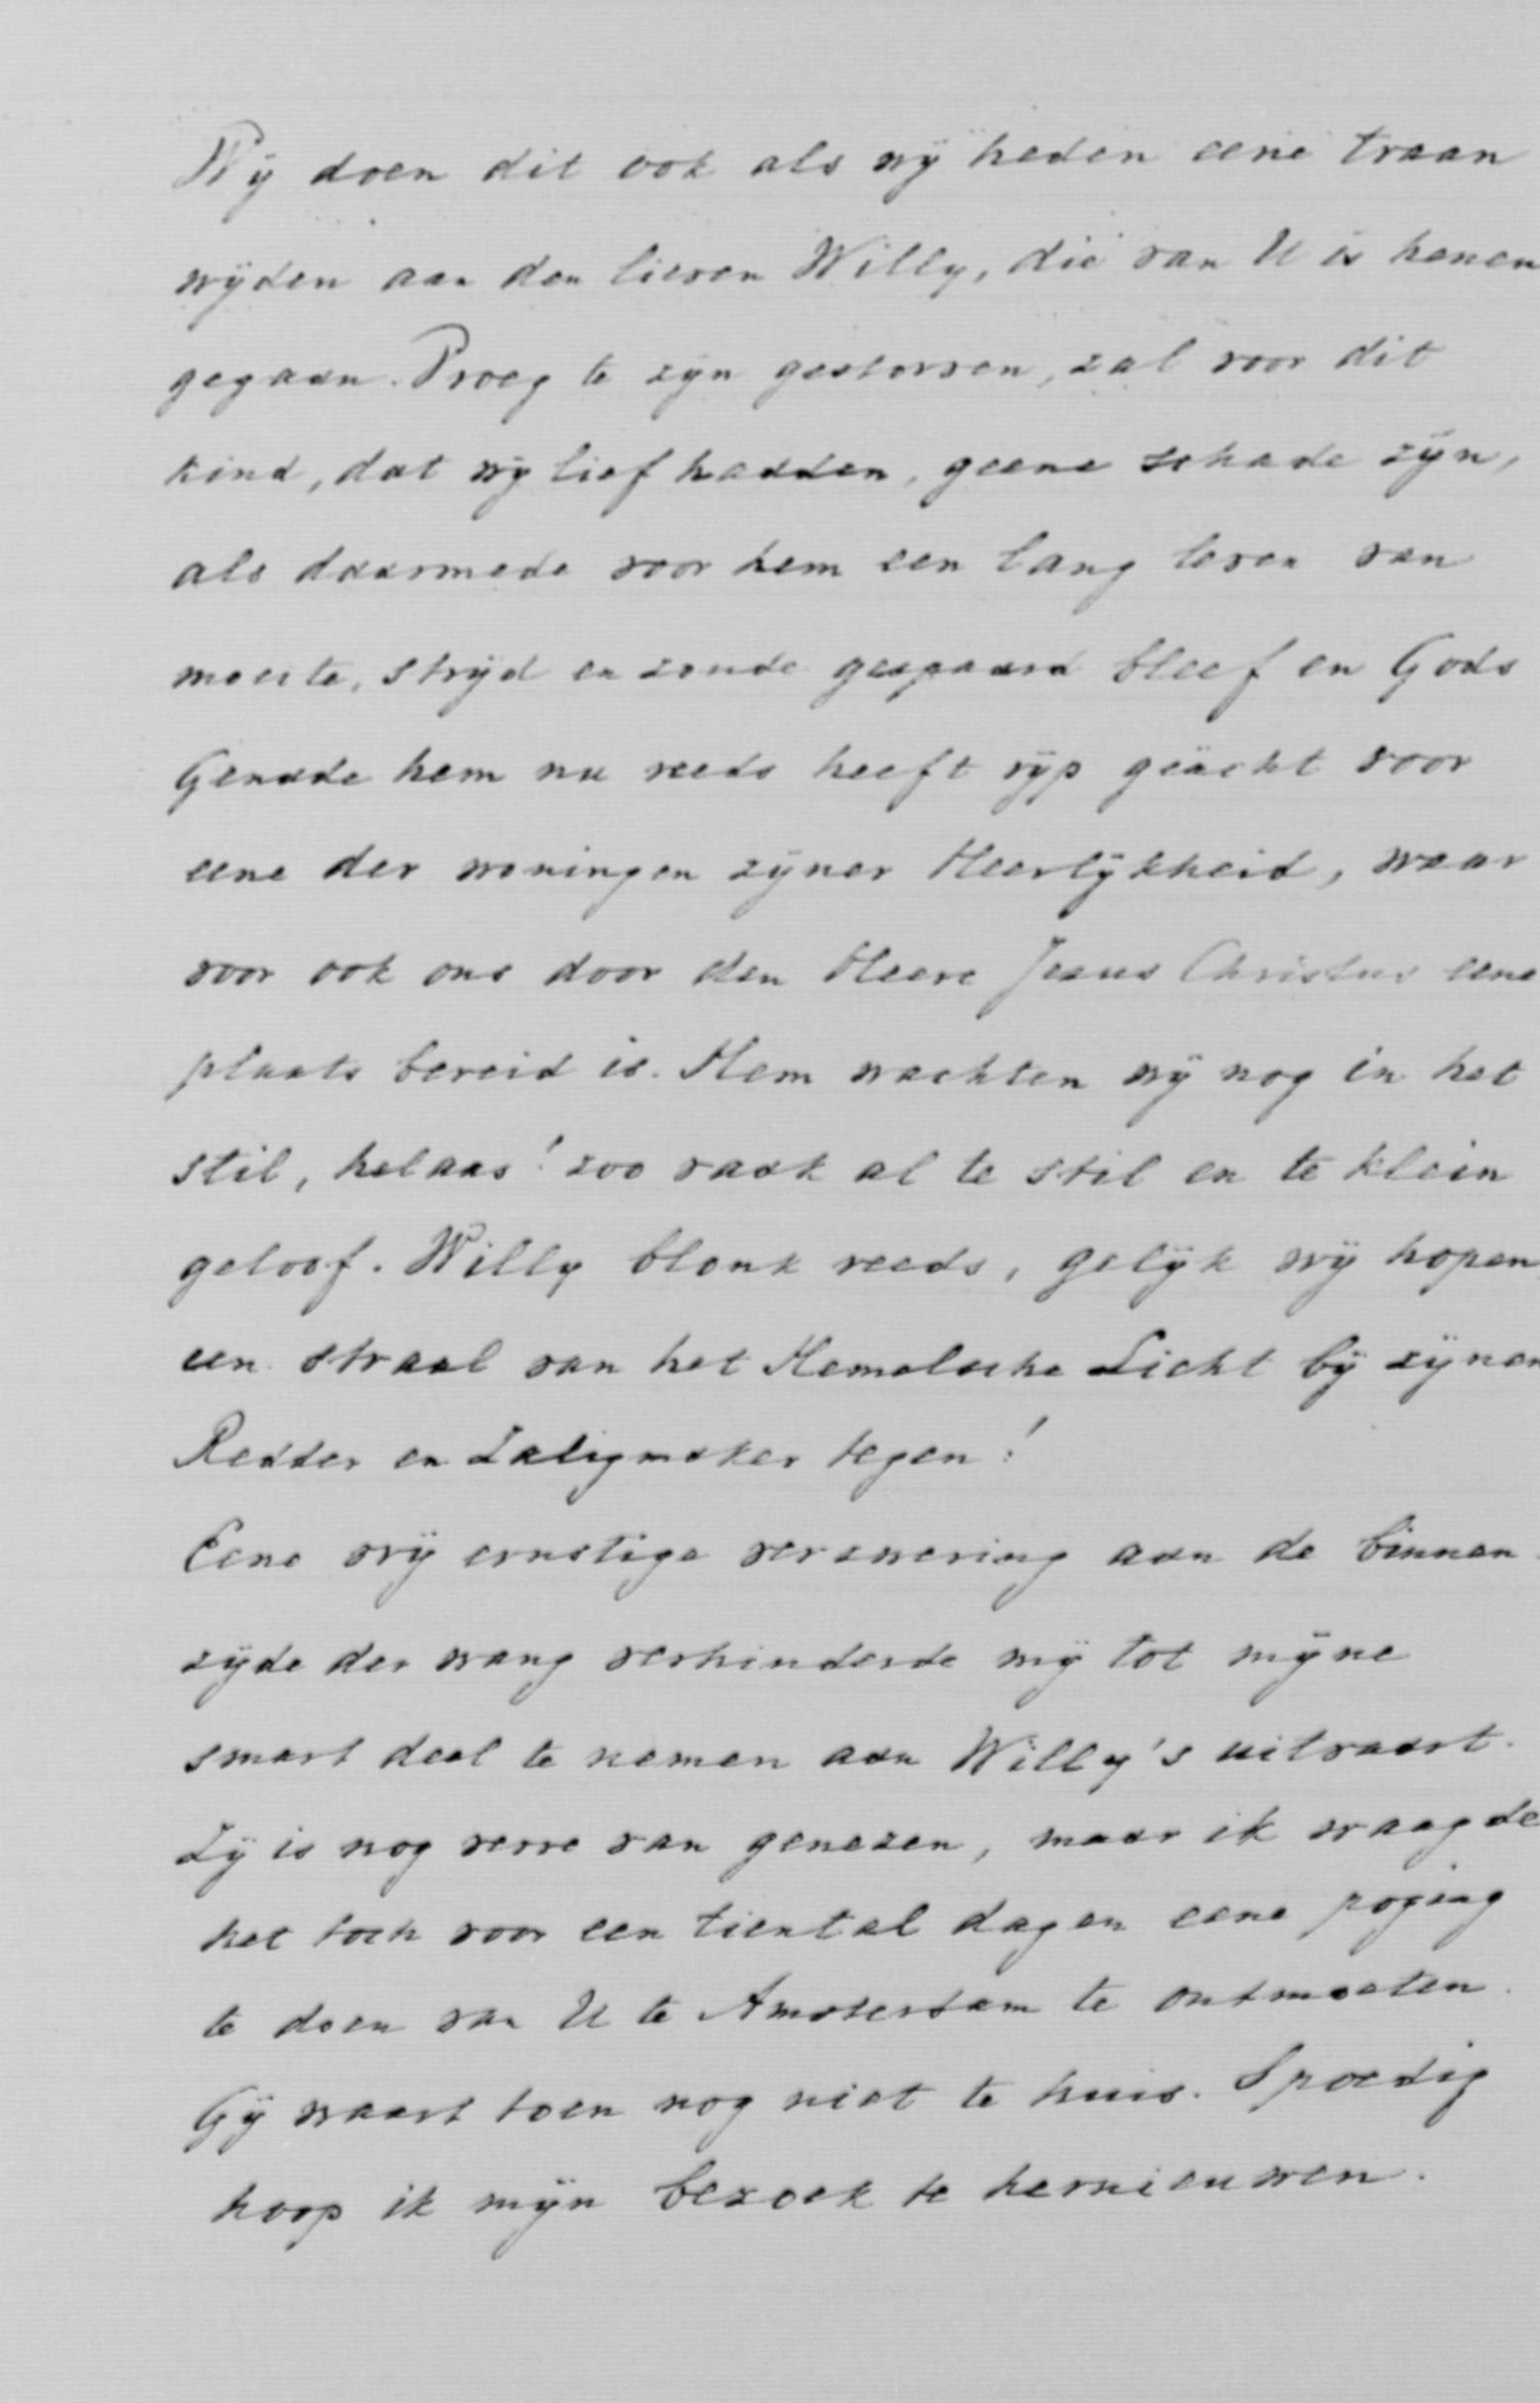 Wij doen dit ook als wij heden eene traan
wijden aan den lieven Willy, die van U is henen
gegaan. Vroeg te zijn gestorven, zal voor dit
kind, dat wij lief hadden, geene schade zijn,
als daarmede voor hem een lang leven van
moeite, strijd en zonde gespaard bleef en Gods
Genade hem nu reeds heeft rijp geacht voor
eene der woningen zijner Heerlijkheid, waar
voor ook ons door den Heere Jezus Christus eene
plaats bereid is. Hem wachten wij nog in het
stil, helaas! zoo vaak al te stil en te klein
geloof. Willy blonk reeds, gelijk wij hopen
een straal van het Hemelsche Licht bij zijnen
Redder en Zaligmaker tegen!
Eene vrij ernstige verzwering aan de binnen-
zijde der wang verhinderde mij tot mijne
smart deel te nemen aan Willy's uitvaart.
Zij is nog verre van genezen, maar ik waagde
het toch voor een tiental dagen eene poging
te doen van U te Amsterdam te ontmoeten.
Gij waart toen nog niet te huis. Spoedig
hoop ik mijn bezoek te hernieuwen.